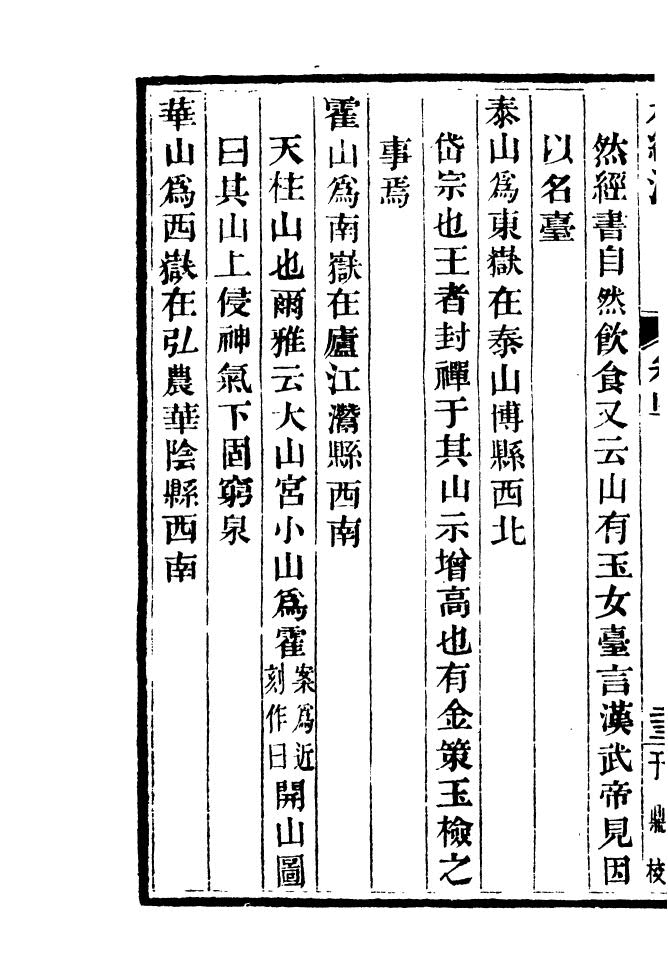 然經書自然飲食又云山有玉女臺言漢武帝見因
以名臺
泰山爲東嶽在泰山博縣西北
岱宗也王者封禪于其山示增高也有金策玉檢之
事焉
霍山爲南嶽在廬江灊縣西南
天柱山也爾雅云大山宮小山爲霍案爲近刻作曰開山圖
曰其山上侵神氣下固窮泉
華山爲西嶽在弘農華陰縣西南